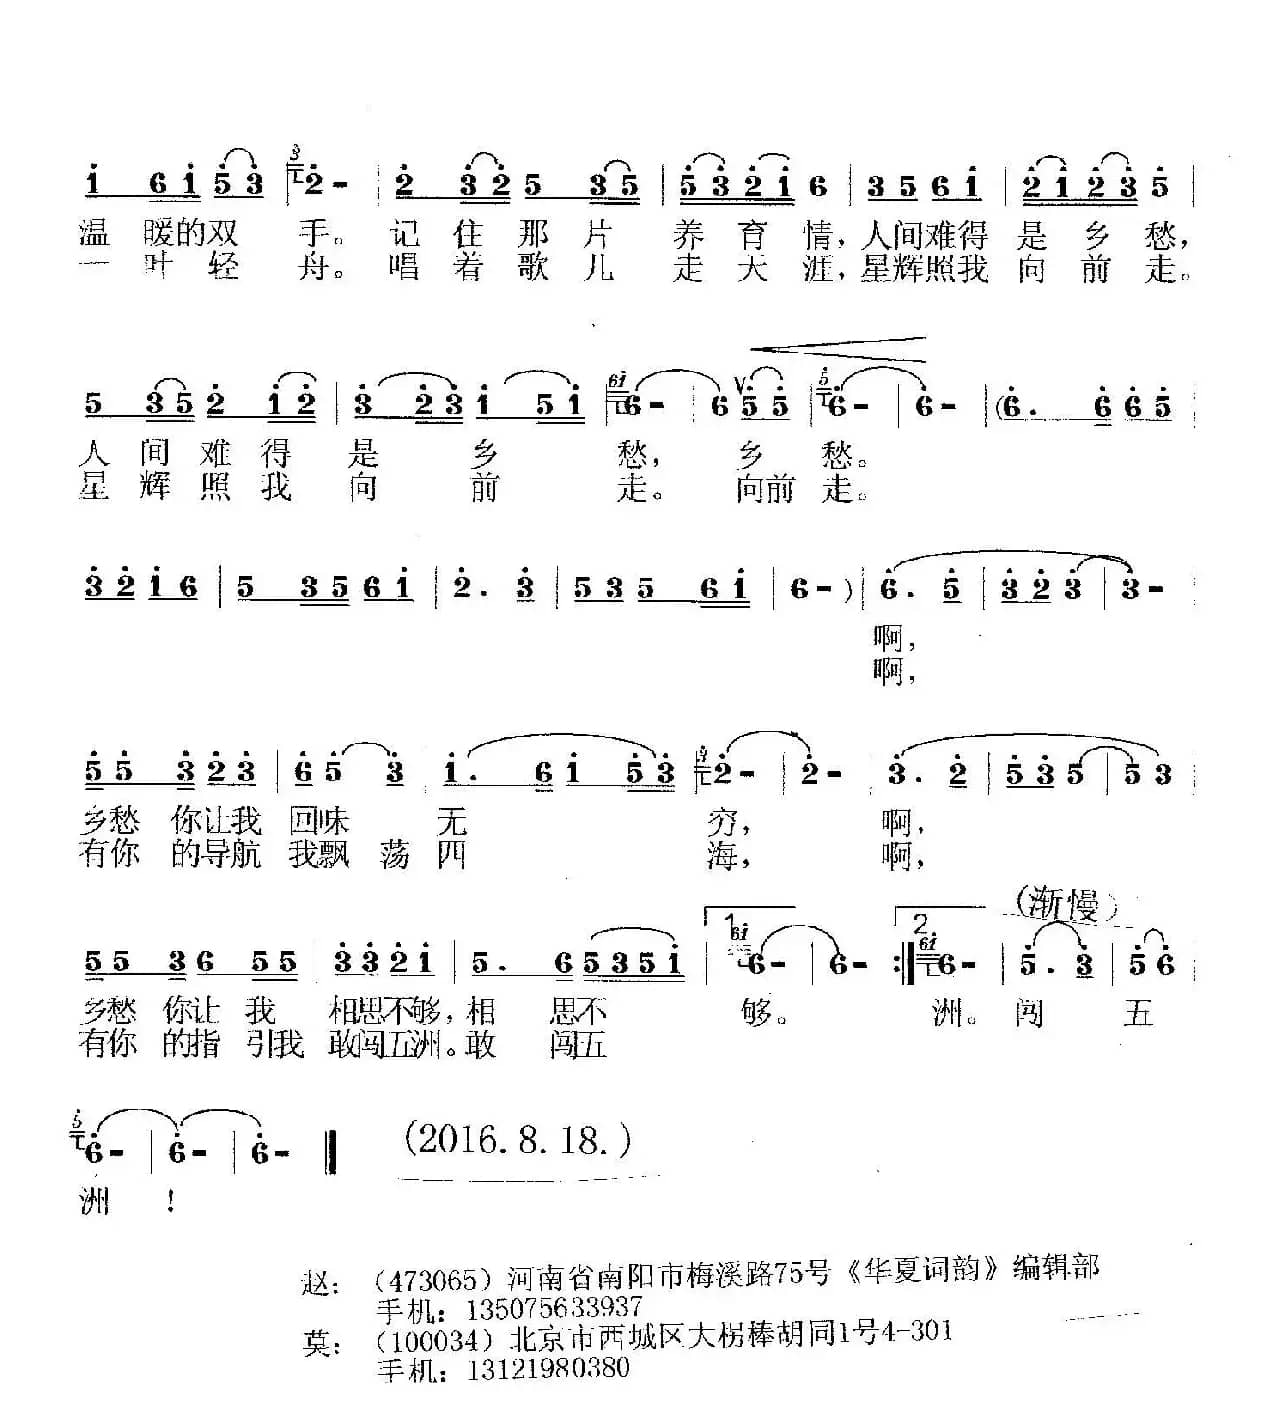 1 61 53 3 2 - | 2 32 5 35 | 53 21 6 | 35 61 | 21 23 5 |
温 暖的双 手。 记 住 那 片 养 育 情, 人间难得 是 乡 愁,
一 叶 轻 舟。 唱 着 歌 儿 走 天 涯, 星辉照我 向 前 走。
5 35 2 12 | 3 23 1 51 | 61 6 - | 6 5 5 | 5 6 - | 6 - | (6. 6 65 |
人 间 难 得 是 乡 愁, 乡 愁。
星 辉 照 我 向 前 走。 向前 走。
32 16 | 5 35 61 | 2. 3 | 53 5 61 | 6 - ) | 6. 5 | 3 2 3 | 3 - |
啊,
啊,
55 3 23 | 65 3 | 1. 61 53 | 3 2 - | 2 - | 3. 2 | 53 5 | 53 |
乡愁 你让我 回味 无 穷, 啊,
有你 的导航 我飘 荡 四 海, 啊,
(渐慢)
55 36 55 | 33 21 | 5. 65351 | 1. 61 6 - | 6 - :| 2. 61 6 - | 5. 3 | 56 |
乡愁 你让 我 相思不够, 相 思不 够。 洲。 闯 五
有你 的指 引我 敢闯五洲。敢 闯五
5 6 - | 6 - | 6 - ‖ (2016.8.18.)
洲 !
赵: (473065) 河南省南阳市梅溪路75号《华夏词韵》编辑部
手机: 135075633937
莫: (100034) 北京市西城区大拐棒胡同1号4-301
手机: 13121980380